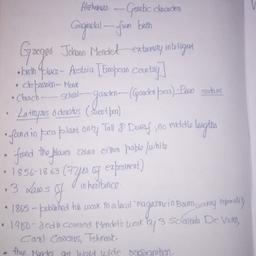 Alkaptonuria — Genetic disorder
Congenital — from birth
Gregor Johann Mendel — extremely intelligent
• birth place - Austria [European country]
• depression - Monk
• Church — school — garden — (garden pea) - Pisum sativum
• Lathyrus odoratus (sweet pea)
• found in pea plant only Tall & Dwarf, no middle heights
• found the flower colour either purple/white
• 1856-1863 (7 years of experiment)
• 3 Laws of inheritance
• 1865 - published his work to a local magazine in Brünn,
• 1900 - rediscovered Mendel's work by 3 Scientists De Vries,
Carl Correns, Tshermak
• thus Mendel got world wide recognition.